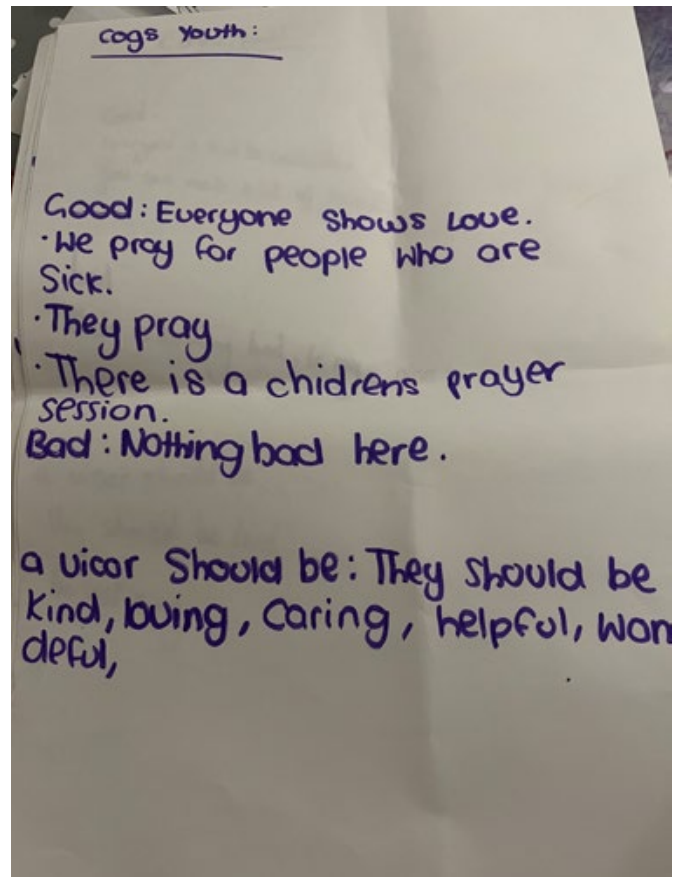 Cogs Youth:
Good: Everyone shows Love.
·We pray for people who are
Sick.
·They pray
·There is a chidrens prayer
session.
Bad: Nothing bad here.
a vicar Should be: They should be
Kind, loving, Caring, helpful, won
deful,